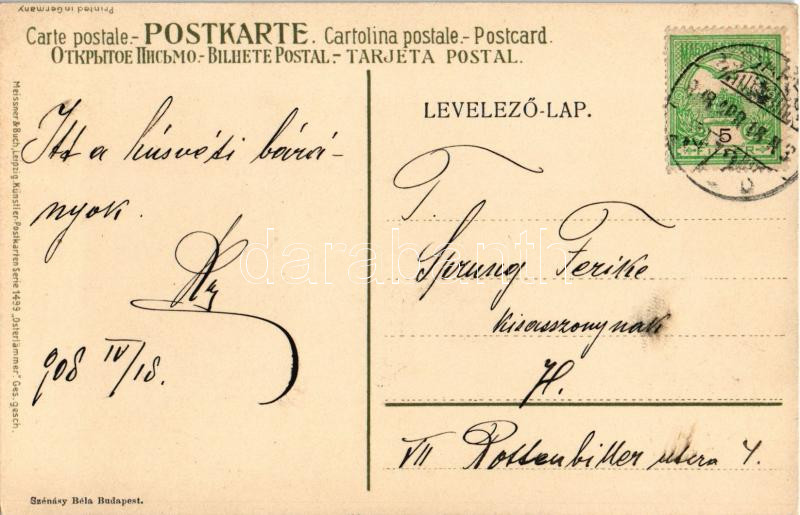 Printed in Germany
Carte postale.- POSTKARTE. Cartolina postale.- Postcard.
ОТКРЫТОЕ ПИСЬМО.- BILHETE POSTAL.- TARJETA POSTAL.
Meissner & Buch, Leipzig. Künstler-Postkarten Serie 1499 „Osterlämmer". Ges. gesch.
Itt a húsvéti bárá-
nyok.
908 IV/18.
Szénásy Béla Budapest.
LEVELEZŐ-LAP.
5
T.
Sprung Ferike
kisasszonynak
H.
VII Rottenbiller utcza 4.
darabanth